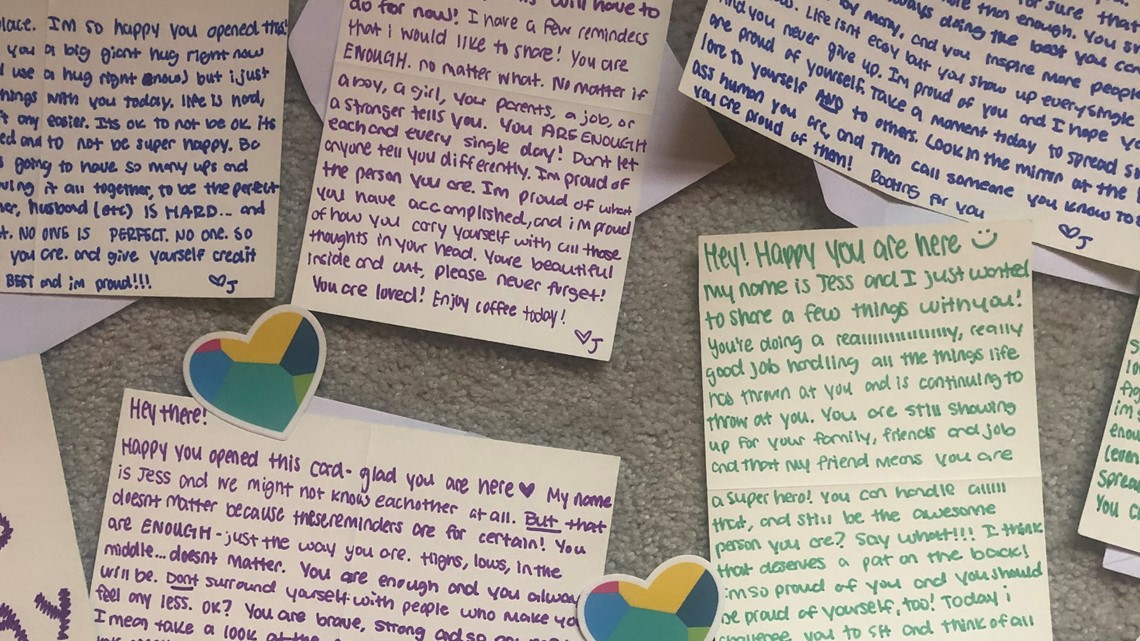 place. Im so happy you opened this!
you a big giant hug right now
use a hug right now) but i just
things with you today. life is hard,
any easier. Its ok to not be ok. its
and to not be super happy. Bo
going to have so many ups and
it all together, to be the perfect
husband (etc) IS HARD... and
NO ONE IS PERFECT. NO ONE. SO
you are. and give yourself credit
BEST and im proud!!!
♡J
will have to
do for now! I have a few reminders
that i would like to share! You are
ENOUGH. no matter what. No matter if
a boy, a girl, your parents, a job, or
a stranger tells you. You ARE ENOUGH
each and every single day! Dont let
anyone tell you differently. Im proud of
the person you are. Im proud of what
you have accomplished, and im proud
of how you cary yourself with all those
thoughts in your head. Youre beautiful
inside and out, please never furget!
You are loved! Enjoy coffee today!
♡J
for sure that
more than enough. You
always doing the best you can
by many, and you inspire more people
Life isnt easy but you show up everysingle
and you never give up. Im proud of you and I hope
are proud of yourself. Take a moment today to spread
love to yourself AND to others. Look in the mirror at the
ass human you are, and then call someone you know to
you are proud of them!
Rooting for you
♡J
Hey! Happy you are here
My name is Jess and I just wanted
to share a few things with you!
You're doing a reallllllllllllllly, really
good job handling all the things life
has thrown at you and is continuing to
throw at you. You are still showing
up for your family, friends and job
and that my friend means you are
a super hero! You can handle allllll
that, and still be the awesome
person you are? Say what!!! I think
that deserves a pat on the back!
im so proud of you and you should
be proud of yourself, too! Today i
challenge you to sit and think of all
Hey there!
Happy you opened this card- glad you are here ♥ My name
is Jess and we might not know eachother at all. But that
doesnt matter because these reminders are for certain! You
are ENOUGH - just the way you are. Highs, lows, in the
middle... doesnt matter. You are enough and you always
will be. Dont surround yourself with people who make you
feel any less. OK? You are brave, strong and so
I mean take a look at the
enou
(even
Spread
You c